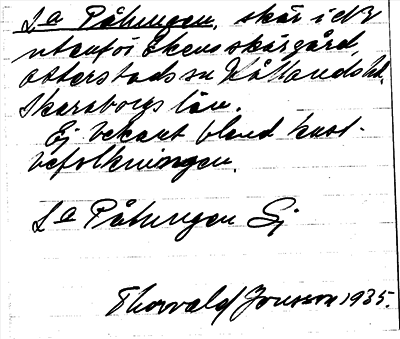 La Påhengen, skär i dB
utanför Ekens skärgård,
Otterstads sn Kållands hd.
Skaraborgs län.
Ej bekant bland kust-
befolkningen.
La Påhengen Ej
Thorvald Jonsson 1935.